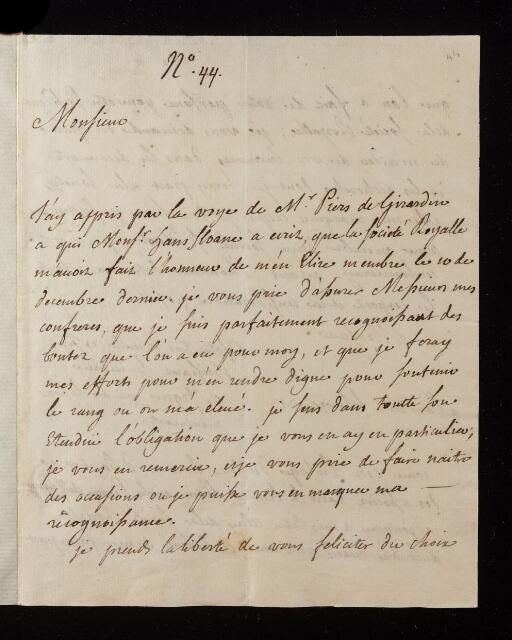 N.º 44.
Monsieur
J'ay appris par la voye de M.r Piers de Girardin
a qui Mons.r hans Sloane a ecrit, que la Societé Royalle
m'avoit fait l'honneur de m'en Elire membre le 10 de
decembre dernier. je vous prie d'assurer Messieurs mes
confreres, que je suis parfaitement recognoissant des
bontez que l'on a eu pour moy, et que je feray
mes efforts pour m'en rendre digne pour soutenir
le rang ou on m'a elevé. je sens dans toutte son
Etendue l'obligation que je vous en ay en particulier,
je vous en remercie, et je vous prie de faire naitre
des occasions ou je puisse vous en marquer ma —
recognoissance.
je prends la liberté de vous feliciter du choix